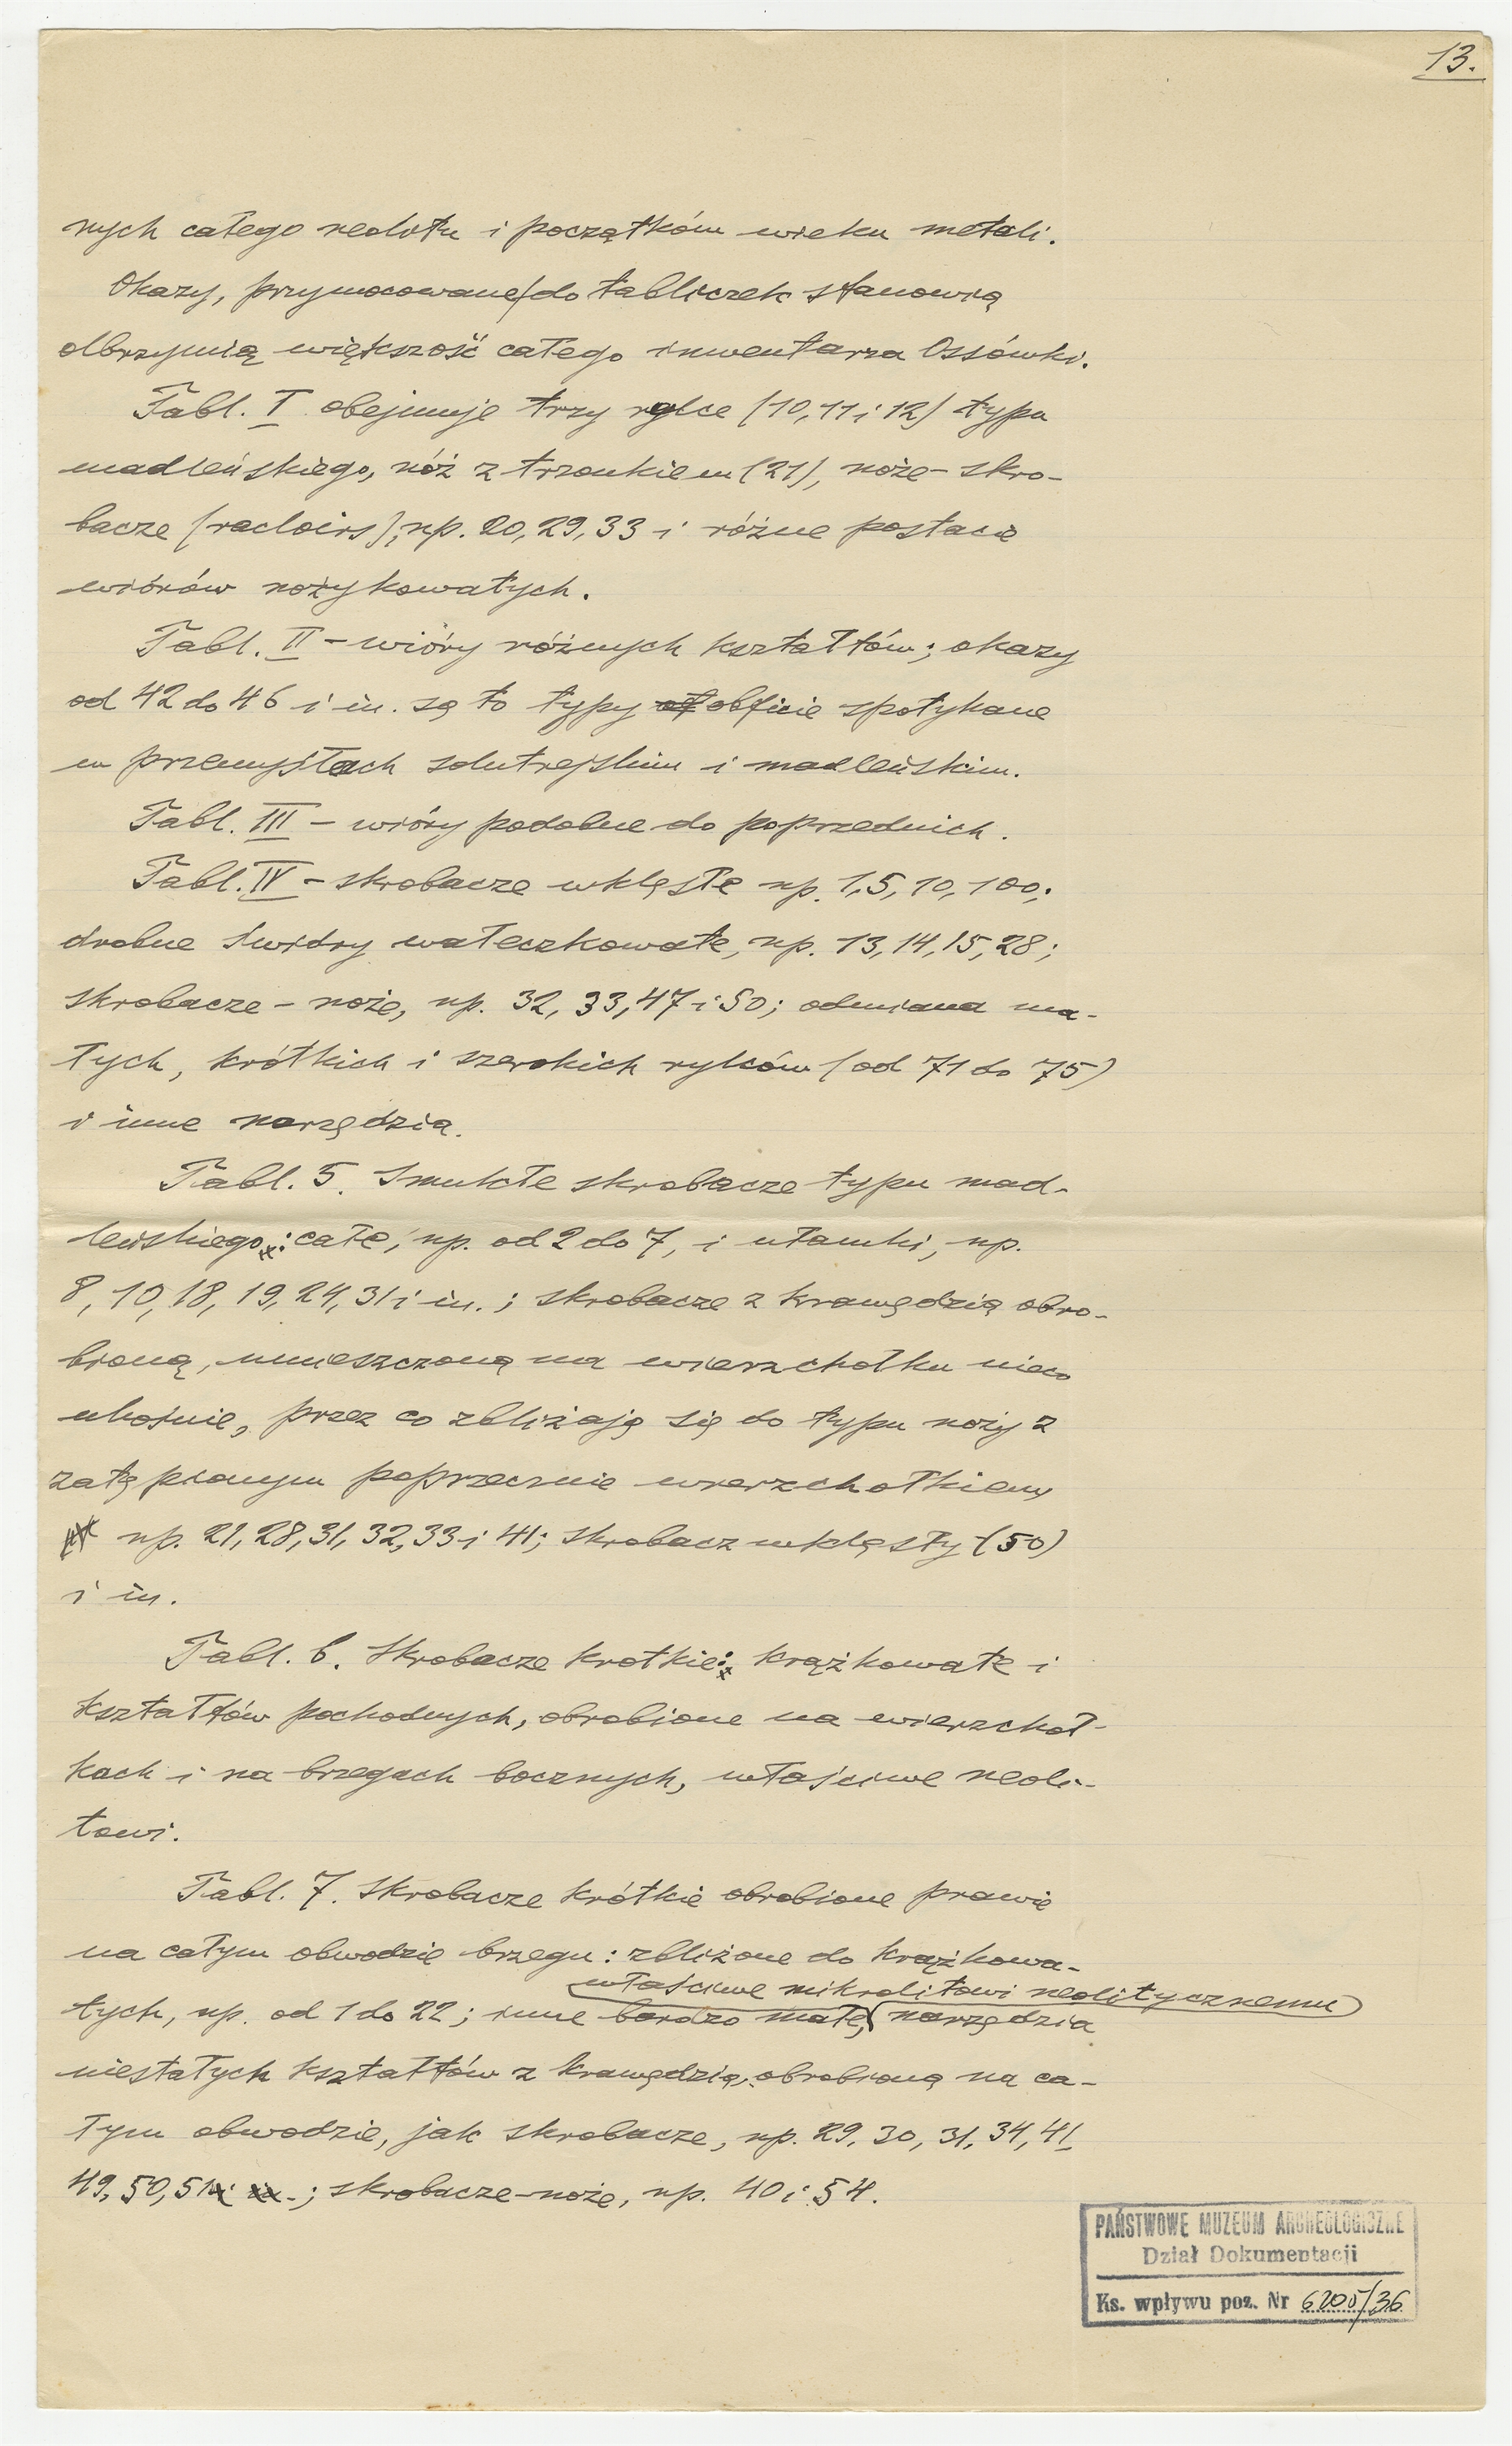 13.
nych całego neolitu i początków wieku metali.
Okazy, przymocowane do tabliczek stanowią
olbrzymią większość całego inwentarza Ossówki.
Tabl. I obejmuje trzy rylce (10, 11 i 12) typu
madleńskiego, nóż z trzonkiem (21), noże-skro-
bacze (racloirs), np. 20, 29, 33 i różne postacie
wiórów nożykowatych.
Tabl. II – wióry różnych kształtów; okazy
od 42 do 46 i in. są to typy obficie spotykane
w przemysłach solutrejskim i madleńskim.
Tabl. III – wióry podobne do poprzednich.
Tabl. IV – skrobacze wklęsłe np. 1, 5, 10, 100;
drobne świdry wałeczkowate, np. 13, 14, 15, 28;
skrobacze – noże, np. 32, 33, 47 i 50; odmiana ma-
łych, krótkich i szerokich rylców (od 71 do 75)
i inne narzędzia.
Tabl. 5. Smukłe skrobacze typu mad-
leńskiego: całe, np. od 2 do 7, i ułamki, np.
8, 10, 18, 19, 24, 31 i in.; skrobacze z krawędzią obro-
bioną, umieszczoną na wierzchołku nieco
ukośnie, przez co zbliżają się do typu noży z
zatępionym poprzecznie wierzchołkiem,
np. 21, 28, 31, 32, 33 i 41; skrobacz wklęsły (50)
i in.
Tabl. 6. Skrobacze krótkie: krążkowate i
kształtów pochodnych, obrobione na wierzchoł-
kach i na brzegach bocznych, właściwe neoli-
towi.
Tabl. 7. Skrobacze krótkie obrobione prawie
na całym obwodzie brzegu: zbliżone do krążkowa-
właściwe mikrolitowi neolitycznemu
tych, np. od 1 do 22; inne bardzo małe, narzędzia
niestałych kształtów z krawędzią, obrobioną na ca-
łym obwodzie, jak skrobacze, np. 29, 30, 31, 34, 41,
49, 50, 51; skrobacze-noże, np. 40 i 54.
PAŃSTWOWE MUZEUM ARCHEOLOGICZNE
Dział Dokumentacji
Ks. wpływu poz. Nr 6205/36